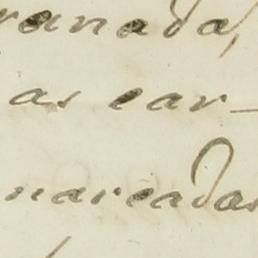 ranada,
as car-
marcadas